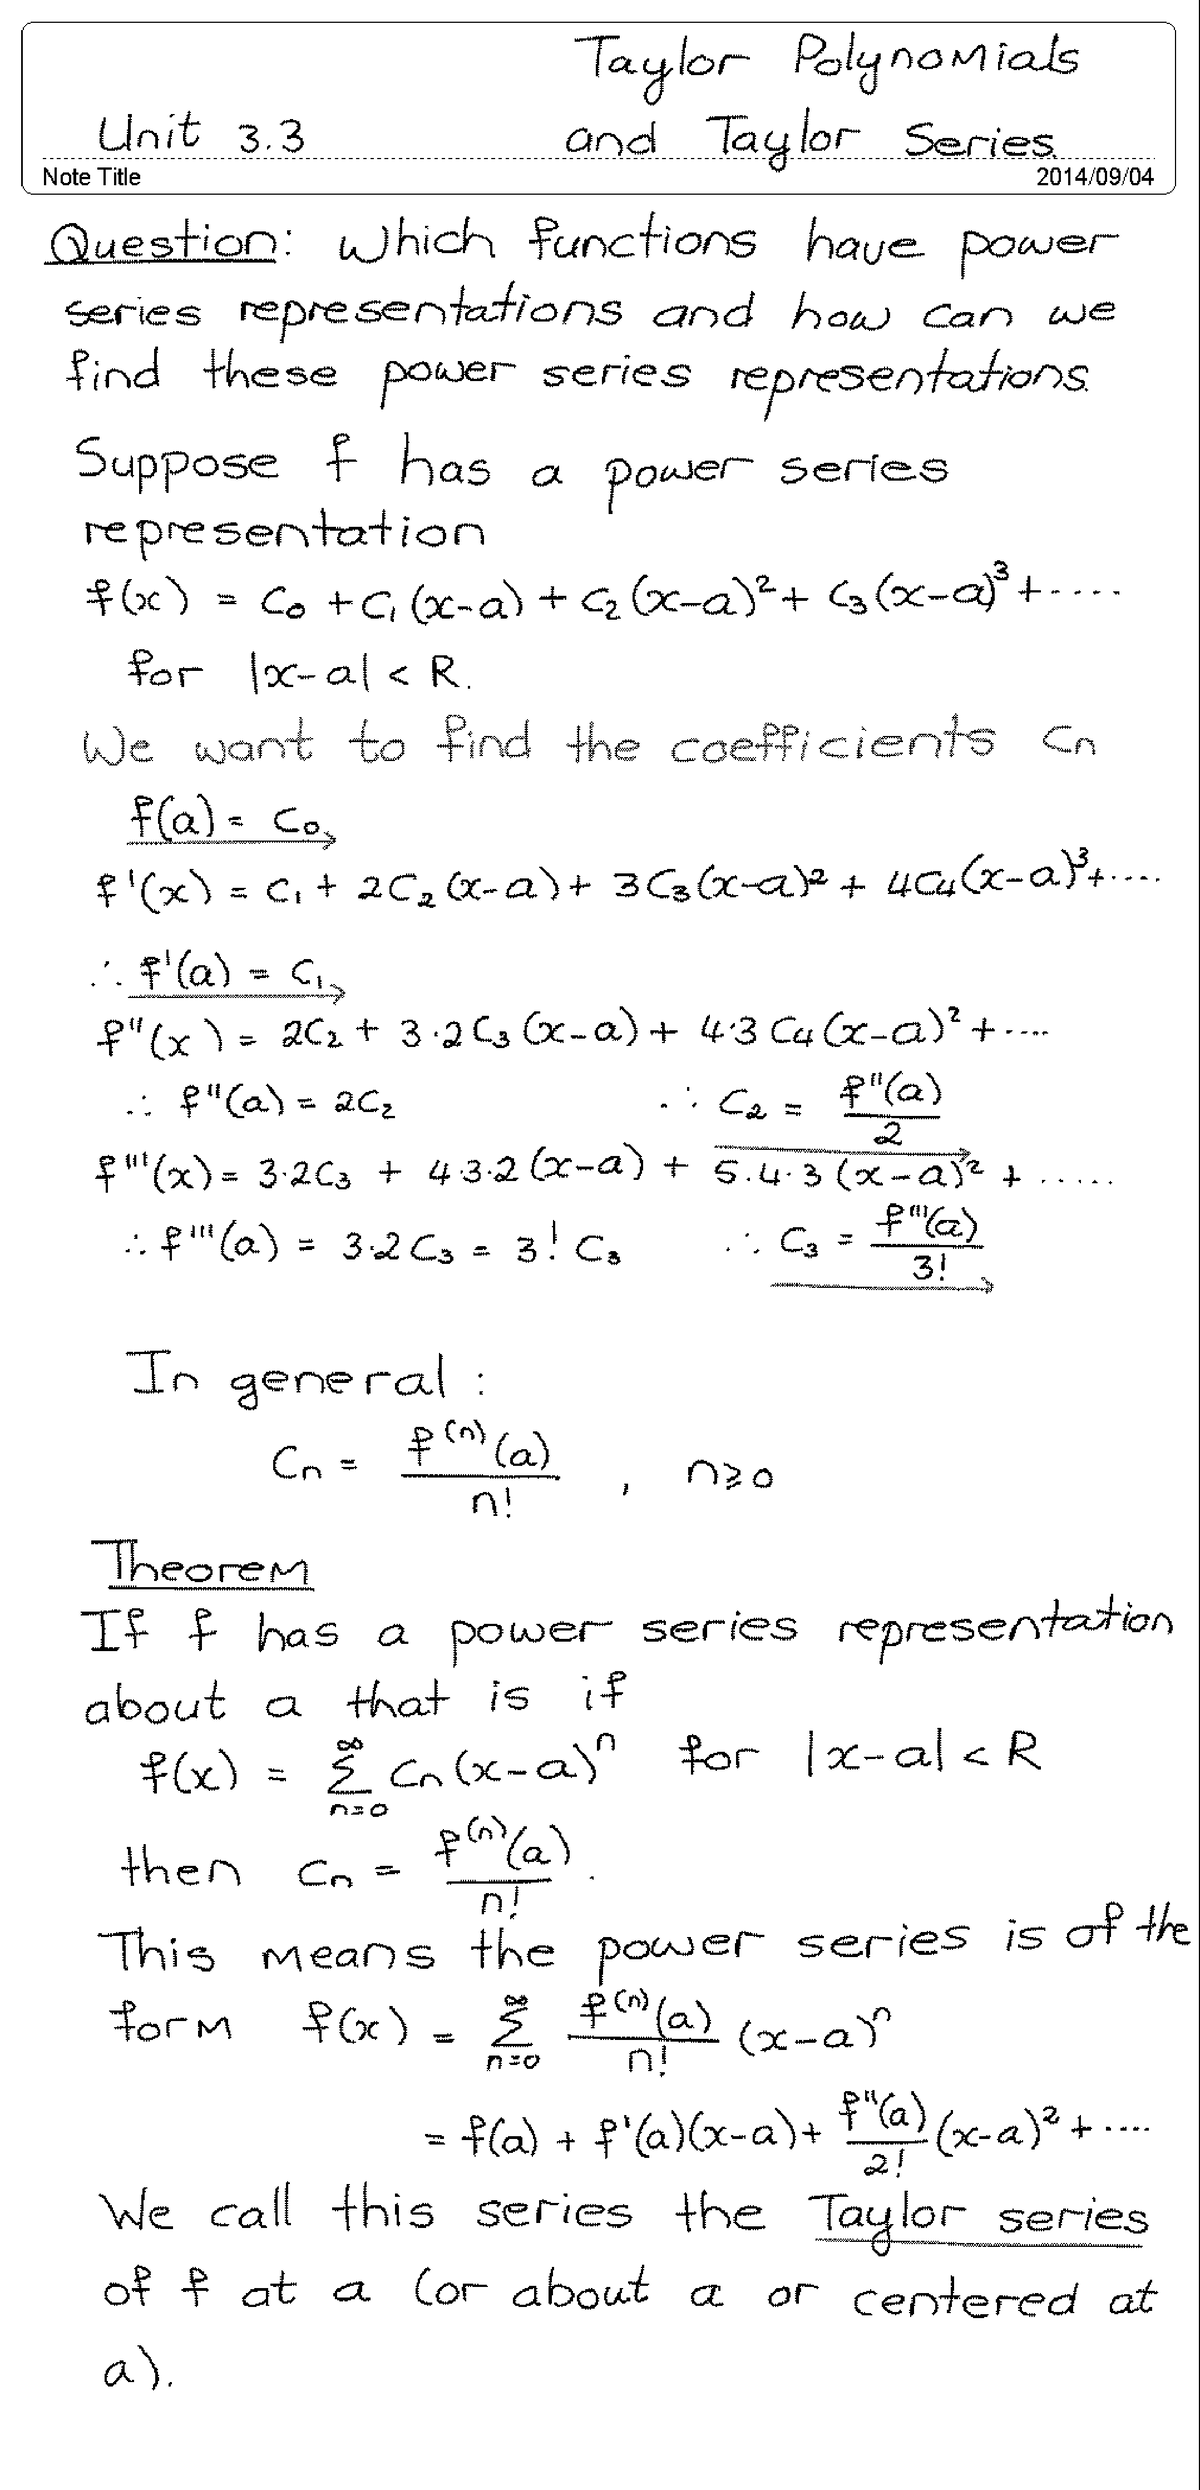 Taylor Polynomials
Unit 3.3 and Taylor Series.
Note Title 2014/09/04
Question: Which functions have power
series representations and how can we
find these power series representations.
Suppose f has a power series
representation
f(x) = C₀ + C₁(x-a) + C₂(x-a)² + C₃(x-a)³ + ....
for |x-a| < R.
We want to find the coefficients Cn
f(a) = C₀
f'(x) = C₁ + 2C₂(x-a) + 3C₃(x-a)² + 4C₄(x-a)³ + ....
∴ f'(a) = C₁
f''(x) = 2C₂ + 3·2C₃(x-a) + 4·3C₄(x-a)² + ....
∴ f''(a) = 2C₂ ∴ C₂ = f''(a)/2
f'''(x) = 3·2C₃ + 4·3·2(x-a) + 5·4·3(x-a)² + .....
∴ f'''(a) = 3·2C₃ = 3! C₃ ∴ C₃ = f'''(a)/3!
In general:
Cn = f⁽ⁿ⁾(a)/n! , n≥0
Theorem
If f has a power series representation
about a that is if
f(x) = ∑_{n=0}^{∞} Cn(x-a)ⁿ for |x-a| < R
then Cn = f⁽ⁿ⁾(a)/n! .
This means the power series is of the
form f(x) = ∑_{n=0}^{∞} f⁽ⁿ⁾(a)/n! (x-a)ⁿ
= f(a) + f'(a)(x-a) + f''(a)/2! (x-a)² + ....
We call this series the Taylor series
of f at a (or about a or centered at
a).